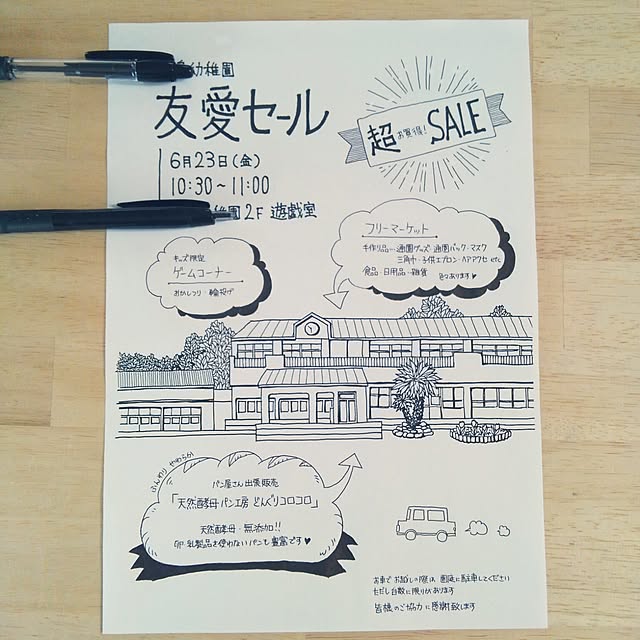 幼稚園
友愛セール
6月23日(金)
10:30~11:00
園2F 遊戯室
超 お買得! SALE
キッズ限定
ゲームコーナー
おかしつり・輪投げ
フリーマーケット
手作り品…通園グッズ・通園バック・マスク
三角巾・子供エプロン・ヘアアクセ etc
食品・日用品・雑貨 色々あります♥
ふんわり やわらか
パン屋さん出張販売
「天然酵母パン工房 どんぐりコロコロ」
天然酵母・無添加!!
卵・乳製品を使わないパンも豊富です♥
お車でお越しの際は、園庭に駐車してください
ただし台数に限りがあります
皆様のご協力に感謝致します